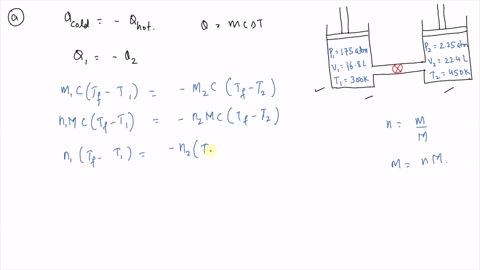 (a) q_cold = - q_hot. Q = mCΔT
Q₁ = - Q₂
m₁C(T_f - T₁) = - m₂C(T_f - T₂)
n₁MC(T_f - T₁) = - n₂MC(T_f - T₂)
n₁(T_f - T₁) = - n₂(T.
P₁ = 1.75 atm
V₁ = 16.8 L
T₁ = 300K
P₂ = 2.25 atm
V₂ = 22.4 L
T₂ = 450K
n = m/M
m = nM.